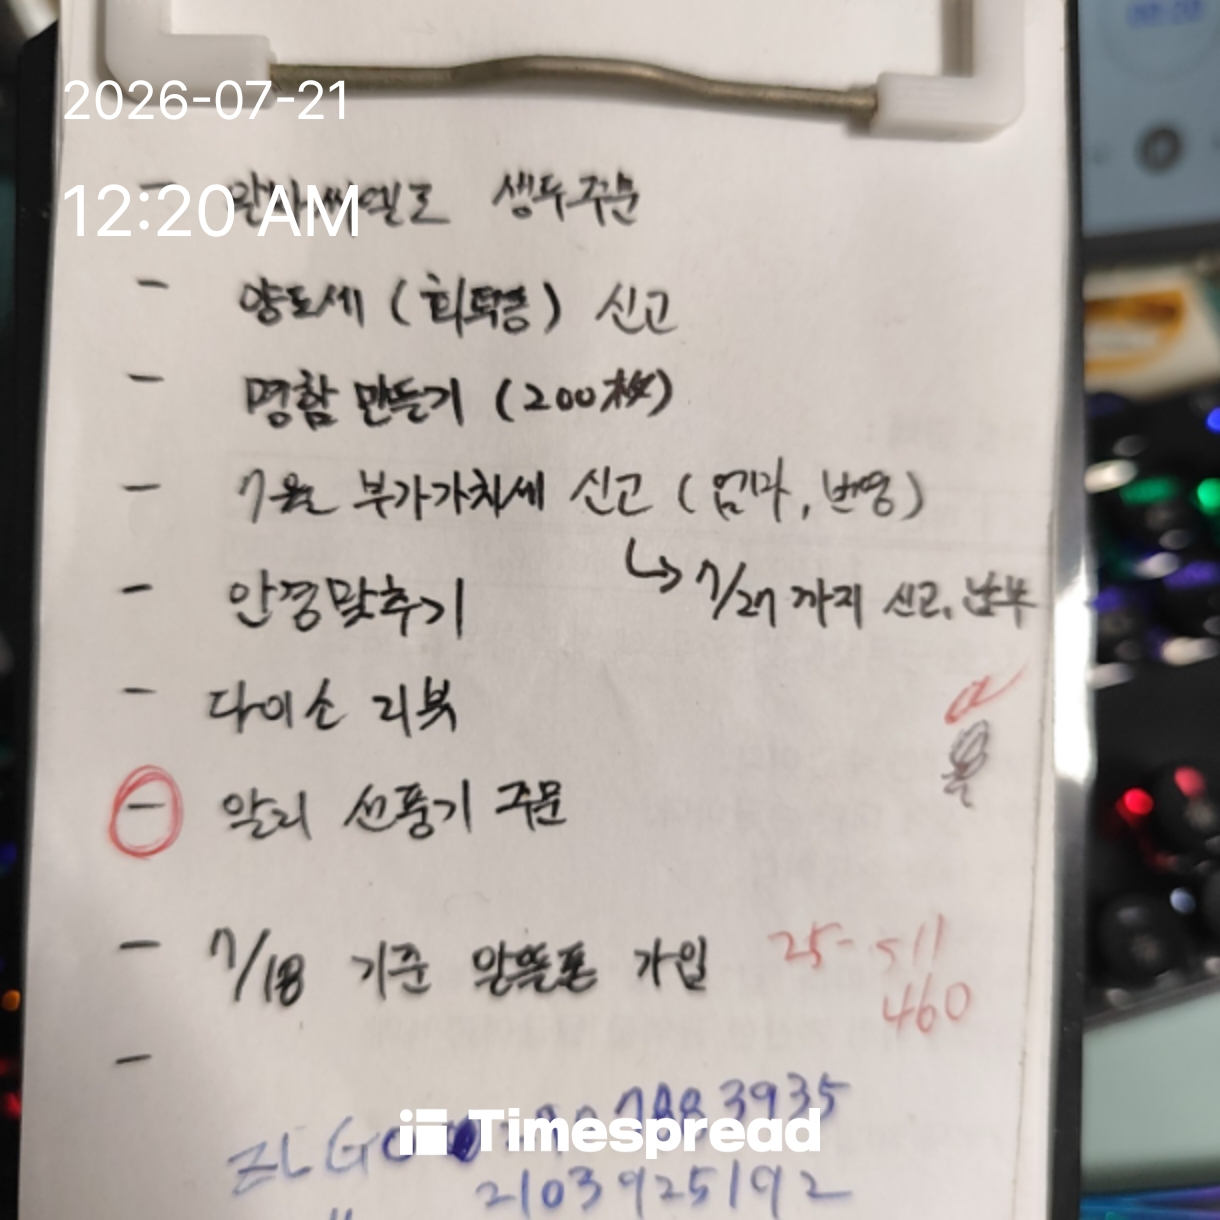 2026-07-21
12:20 AM
생두주문
- 양도세 (희택종) 신고
- 명함 만들기 (200枚)
- 7월 부가가치세 신고 (엄마, 번영)
↳ 7/27 까지 신고, 납부
- 안경맞추기
- 다이소 리뷰
- 알리 선풍기 주문
- 7/18 기준 알뜰폰 가입
25-511
460
-
3935
Timespread
2103925192